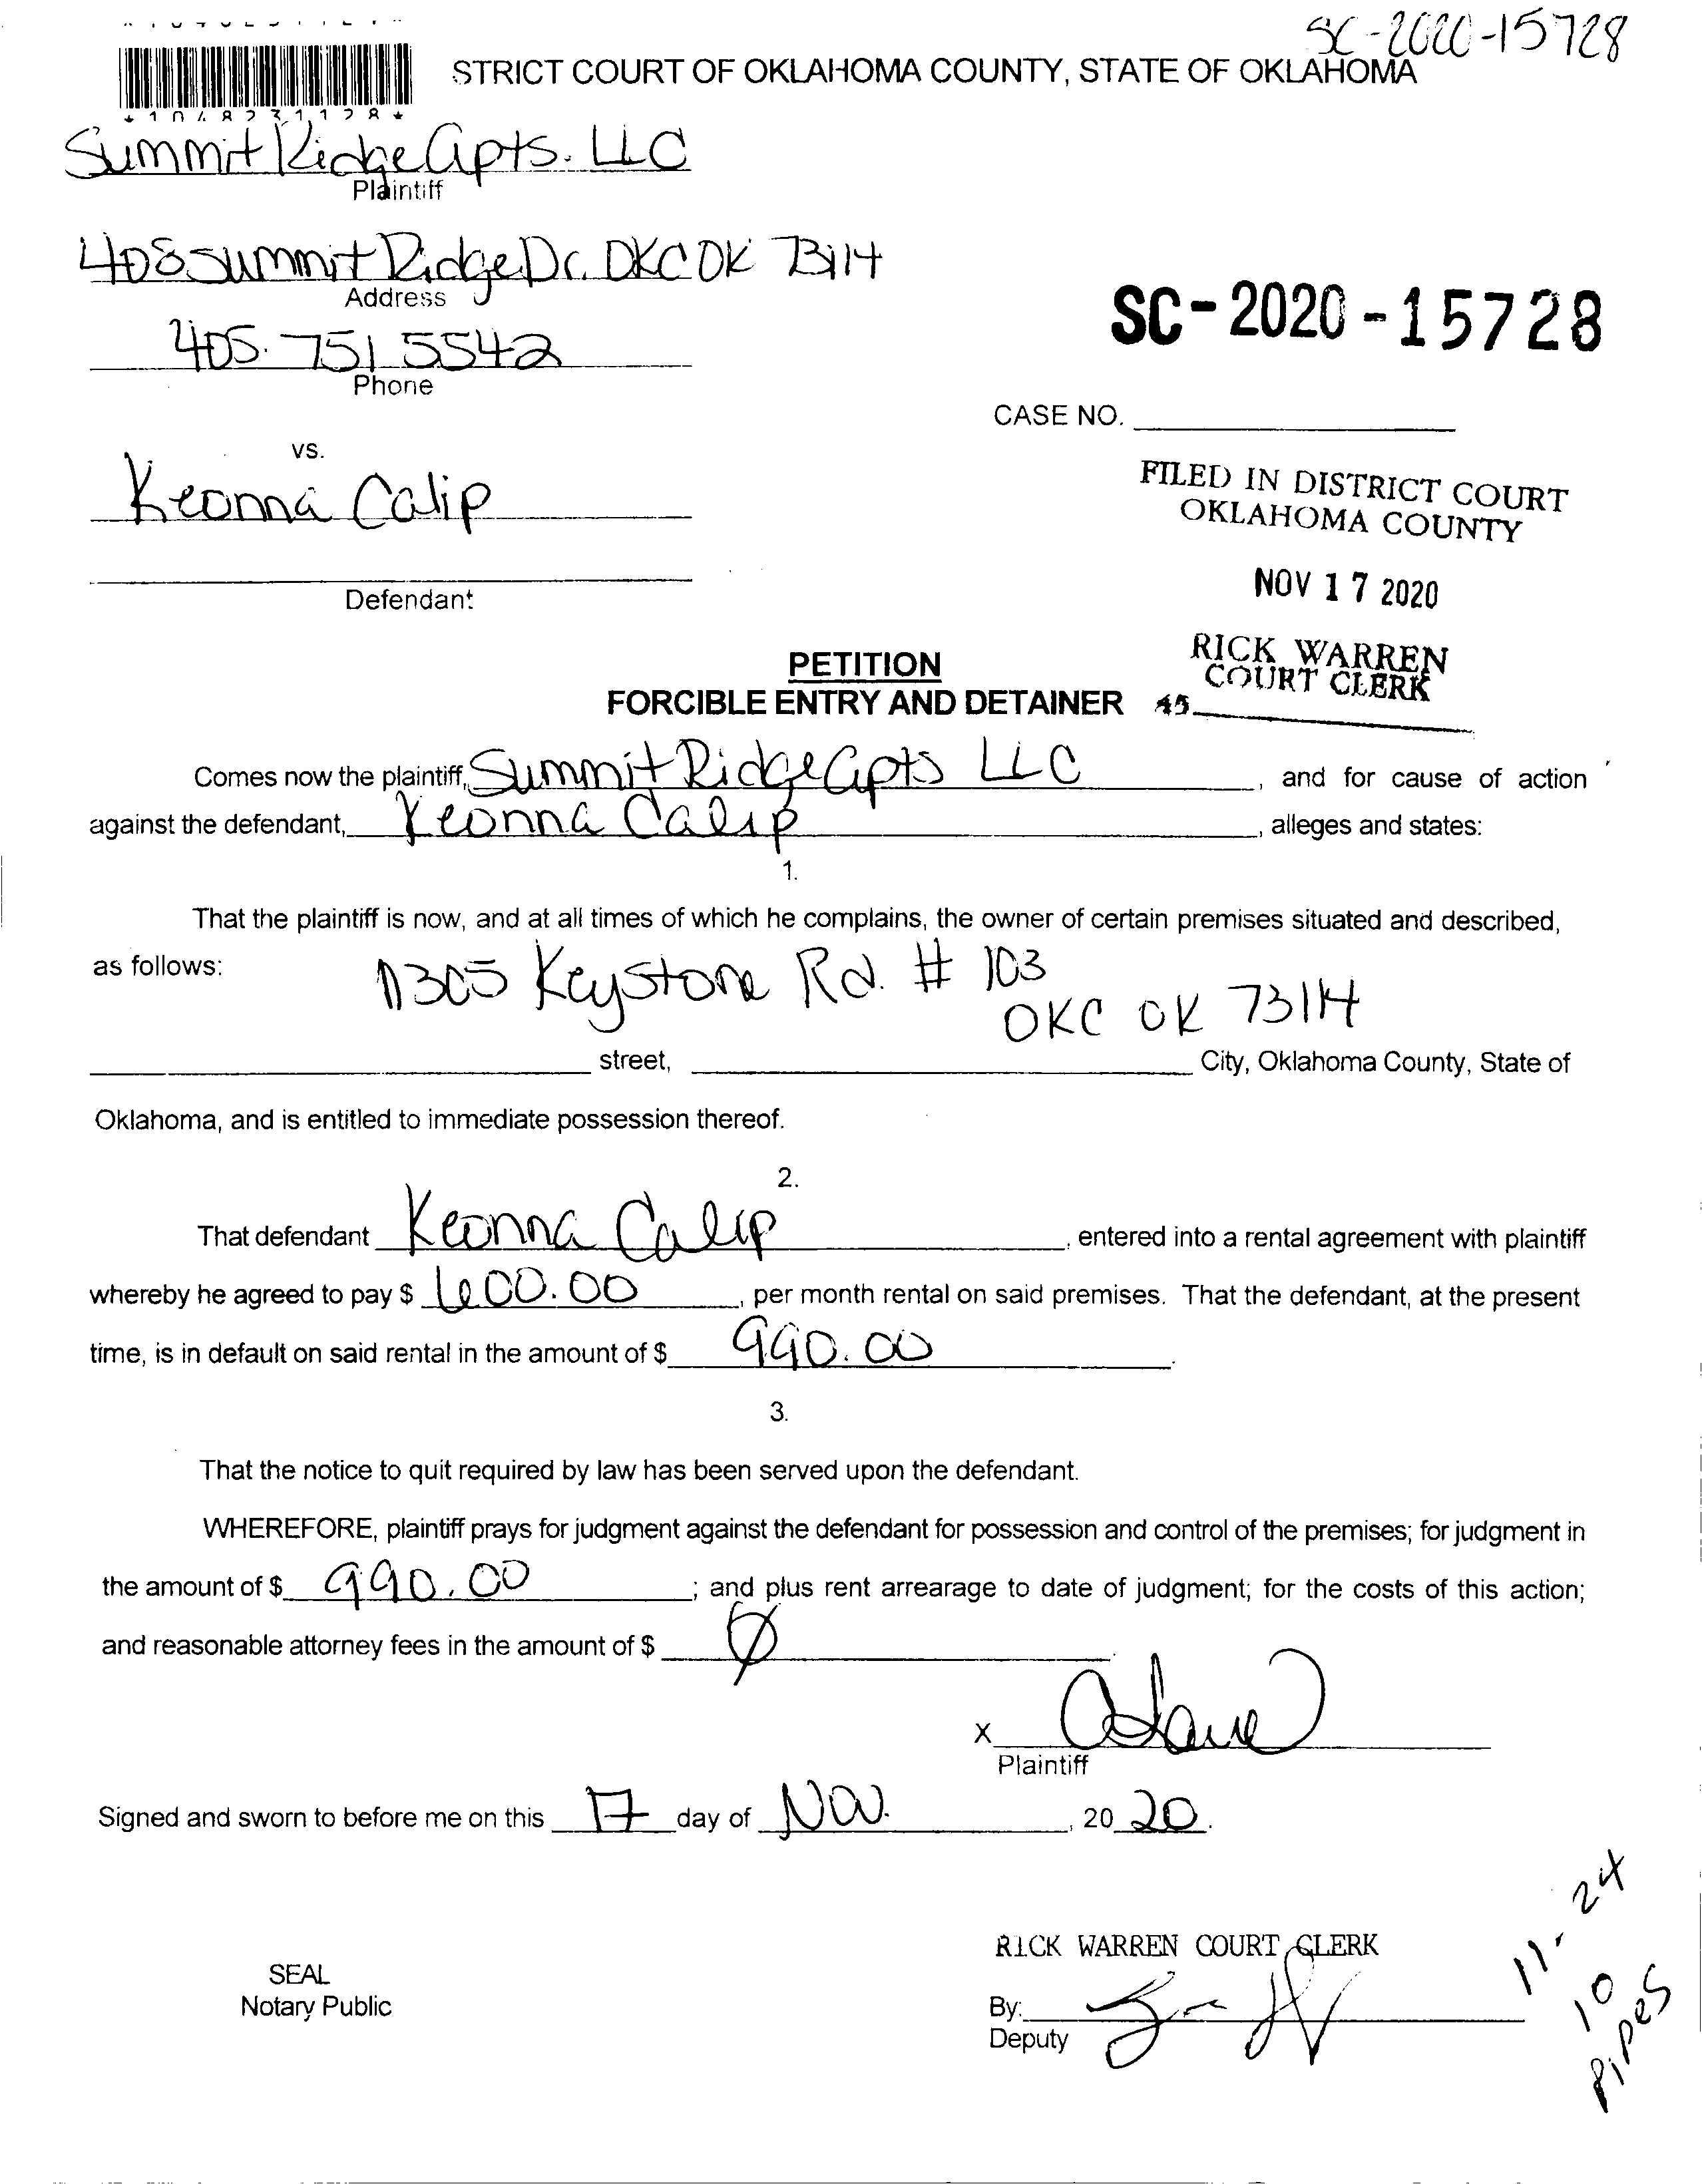 SC-2020-15728
STRICT COURT OF OKLAHOMA COUNTY, STATE OF OKLAHOMA
*1048231128*
Summit Ridge Apts. LLC
Plaintiff
408 Summit Ridge Dr. OKC OK 73114
Address
SC-2020-15728
405.751 5542
Phone
CASE NO.
vs.
Keonna Calip
FILED IN DISTRICT COURT
OKLAHOMA COUNTY
Defendant
NOV 17 2020
RICK WARREN
COURT CLERK
PETITION
FORCIBLE ENTRY AND DETAINER 45
Comes now the plaintiff, Summit Ridge Apts LLC, and for cause of action
against the defendant, Keonna Calip, alleges and states:
1.
That the plaintiff is now, and at all times of which he complains, the owner of certain premises situated and described,
as follows: 11305 Keystone Rd. # 103
OKC OK 73114
street, City, Oklahoma County, State of
Oklahoma, and is entitled to immediate possession thereof.
2.
That defendant Keonna Calip, entered into a rental agreement with plaintiff
whereby he agreed to pay $ 600.00, per month rental on said premises. That the defendant, at the present
time, is in default on said rental in the amount of $ 990.00.
3.
That the notice to quit required by law has been served upon the defendant.
WHEREFORE, plaintiff prays for judgment against the defendant for possession and control of the premises; for judgment in
the amount of $ 990.00; and plus rent arrearage to date of judgment; for the costs of this action;
and reasonable attorney fees in the amount of $ Ø.
X
Plaintiff
Signed and sworn to before me on this 17 day of Nov., 20 20.
11-24
10
Pipes
RICK WARREN COURT CLERK
SEAL
Notary Public
By:
Deputy